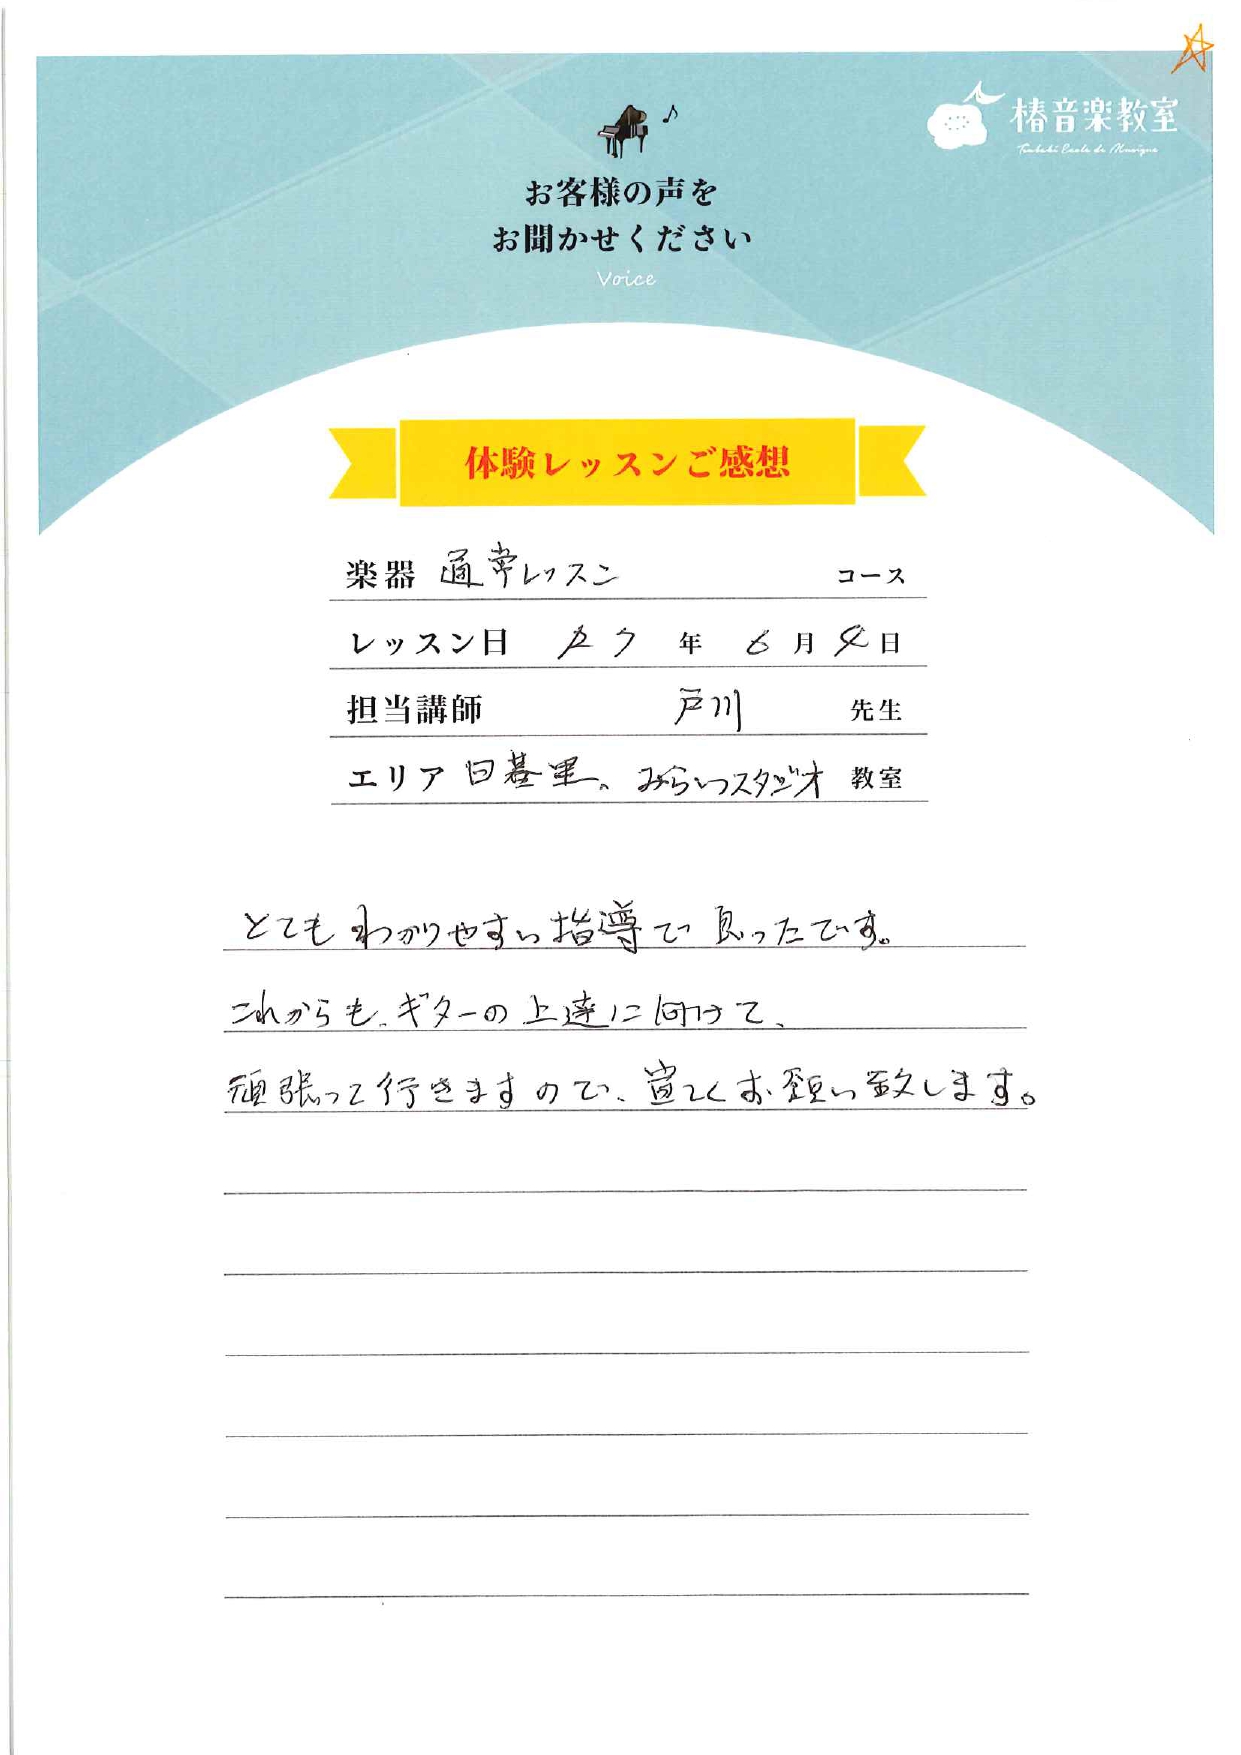 椿音楽教室
Tsubaki Ecole de Musique
お客様の声を
お聞かせください
Voice
体験レッスンご感想
楽器 通常レッスン コース
レッスン日 R7 年 6 月 4 日
担当講師 戸川 先生
エリア 日暮里、みらいスタジオ 教室
とてもわかりやすい指導で良ったです。
これからも、ギターの上達に向けて、
頑張って行きますので、宜しくお願い致します。